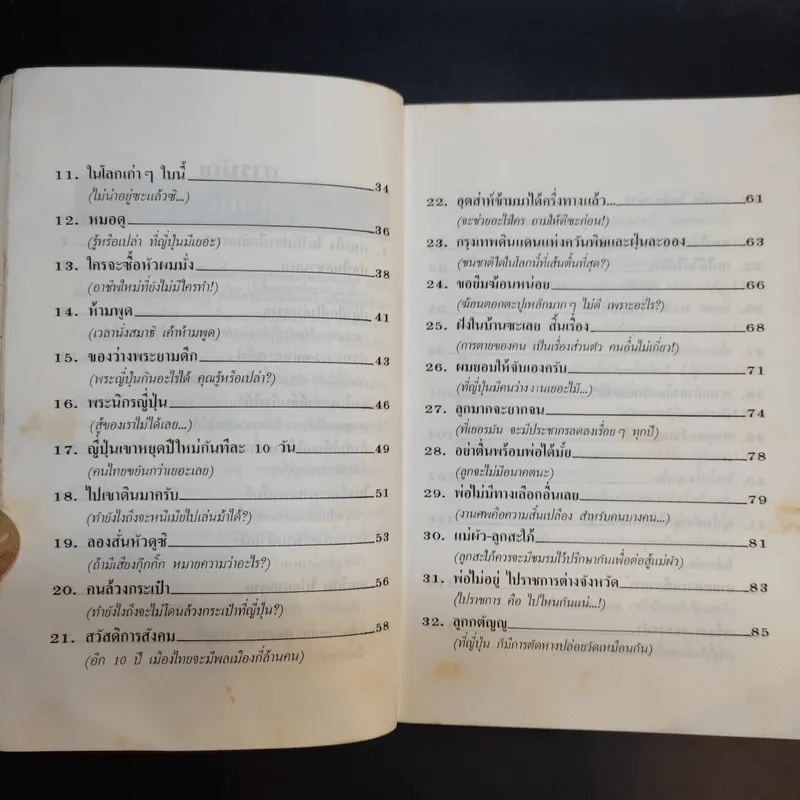 11. ในโลกเก่าๆ ใบนี้ 34
(ไม่น่าอยู่ซะแล้วซิ...)
12. หมอดู 36
(รู้หรือเปล่า ที่ญี่ปุ่นมีเยอะ)
13. ใครจะซื้อหัวผมมั่ง 38
(อาชีพใหม่ที่ยังไม่มีใครทำ!)
14. ห้ามพูด 41
(เวลานั่งสมาธิ เค้าห้ามพูด)
15. ของว่างพระยามดึก 43
(พระญี่ปุ่นกินอะไรได้ คุณรู้หรือเปล่า?)
16. พระนิกรญี่ปุ่น 46
(สู้ของเราไม่ได้เลย...)
17. ญี่ปุ่นเขาหยุดปีใหม่กันทีละ 10 วัน 49
(คนไทยขยันกว่าเยอะเลย)
18. ไปเขาดินมาครับ 51
(ทำยังไงถึงจะหนีเมียไปเล่นม้าได้?)
19. ลองสั่นหัวดูซิ 53
(ถ้ามีเสียงกุ๊กกิ๊ก หมายความว่าอะไร?)
20. คนล้วงกระเป๋า 56
(ทำยังไงถึงจะไม่โดนล้วงกระเป๋าที่ญี่ปุ่น?)
21. สวัสดิการสังคม 58
(อีก 10 ปี เมืองไทยจะมีพลเมืองกี่ล้านคน)
22. อุตส่าห์ข้ามมาได้ครึ่งทางแล้ว... 61
(จะช่วยอะไรใคร ถามให้ดีซะก่อน!)
23. กรุงเทพดินแดนแห่งควันพิษและฝุ่นละออง 63
(ชนชาติใดในโลกนี้ที่เส้นตื้นที่สุด?)
24. ขอยืมฆ้อนหน่อย 66
(ฆ้อนตอกตะปูเหล็กมากๆ ไม่ดี เพราะอะไร?)
25. ฝังในบ้านซะเลย สิ้นเรื่อง 68
(การตายของคน เป็นเรื่องส่วนตัว คนอื่นไม่เกี่ยว!)
26. ผมยอมให้จับเองครับ 71
(ที่ญี่ปุ่นมีคนว่างงานเยอะไม๊...)
27. ลูกมากจะยากจน 74
(ที่เยอรมัน จะมีประชากรลดลงเรื่อยๆ ทุกปี)
28. อย่าตื่นพร้อมพ่อได้มั้ย 78
(ลูกจะไม่มีอนาคตนะ)
29. พ่อไม่มีทางเลือกอื่นเลย 79
(งานศพคือความสิ้นเปลือง สำหรับคนบางคน...)
30. แม่ผัว-ลูกสะใภ้ 81
(ลูกสะใภ้ควรจะมีชมรมไว้ปรึกษากันเพื่อต่อสู้แม่ผัว)
31. พ่อไม่อยู่ ไปราชการต่างจังหวัด 83
(ไปราชการ คือ ไปไหนกันแน่...!)
32. ลูกกตัญญู 85
(ที่ญี่ปุ่น ก็มีการตัดหางปล่อยวัดเหมือนกัน)